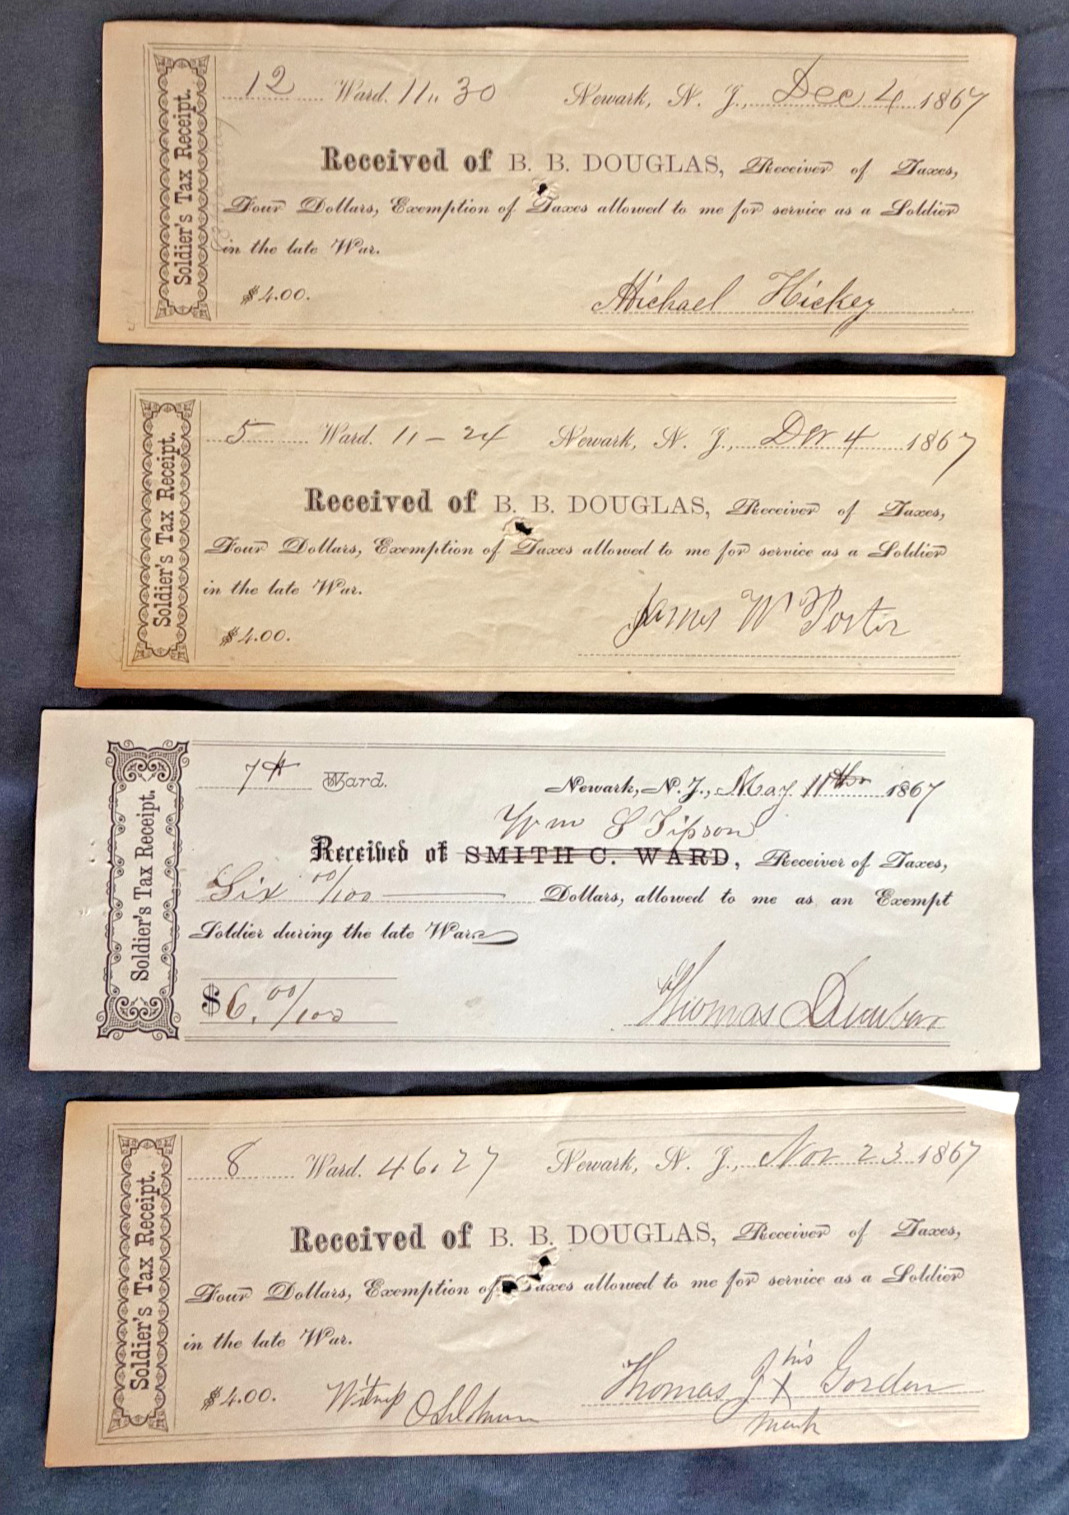 Soldier's Tax Receipt.
12 Ward. 11.. 30 Newark, N. J., Dec 4 1867
Received of B. B. DOUGLAS, Receiver of Taxes,
Four Dollars, Exemption of Taxes allowed to me for service as a Soldier
in the late War.
$4.00. Michael Hickey
Soldier's Tax Receipt.
5 Ward. 11 - 24 Newark, N. J., Dec 4 1867
Received of B. B. DOUGLAS, Receiver of Taxes,
Four Dollars, Exemption of Taxes allowed to me for service as a Soldier
in the late War.
$4.00. James W Porter
Soldier's Tax Receipt.
7th Ward. Newark, N. J., May 11th 1867
Wm
Received of SMITH C. WARD, Receiver of Taxes,
Six 00/100 Dollars, allowed to me as an Exempt
Soldier during the late War
$6.00/100 Thomas
Soldier's Tax Receipt.
8 Ward. 46.27 Newark, N. J., Nov 23 1867
Received of B. B. DOUGLAS, Receiver of Taxes,
Four Dollars, Exemption of Taxes allowed to me for service as a Soldier
in the late War.
his
$4.00. Witness Thomas J X Gordon
mark